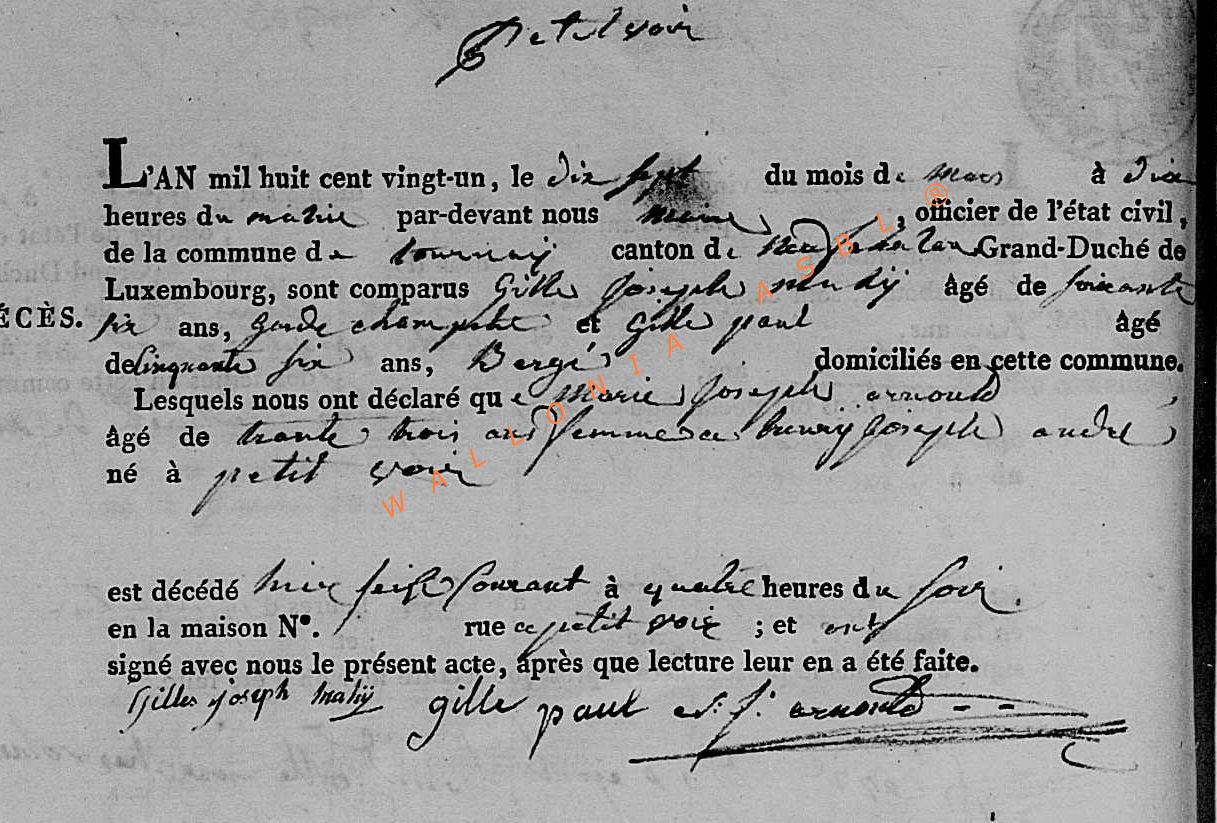 Petitvoir
L'AN mil huit cent vingt-un, le dix sept du mois de mars à dix
heures du matin par-devant nous maire, officier de l'état civil,
de la commune de tournay canton de neufchateau Grand-Duché de
Luxembourg, sont comparus Gille Joseph mahy âgé de soixante
ÉCÈS. six ans, garde champetre et Gille paul âgé
de Cinquante six ans, Bergé domiciliés en cette commune.
Lesquels nous ont déclaré que Marie Joseph arnould,
âgé de trante trois ans femme de henry Joseph andré
né à petit voir
est décédé hier seise Courant à quatre heures du soir.
en la maison N°. rue de petit voir ; et ont
signé avec nous le présent acte, après que lecture leur en a été faite.
Gilles Joseph Mahy gille paul J. arnould
WALLONIA ASBL ®